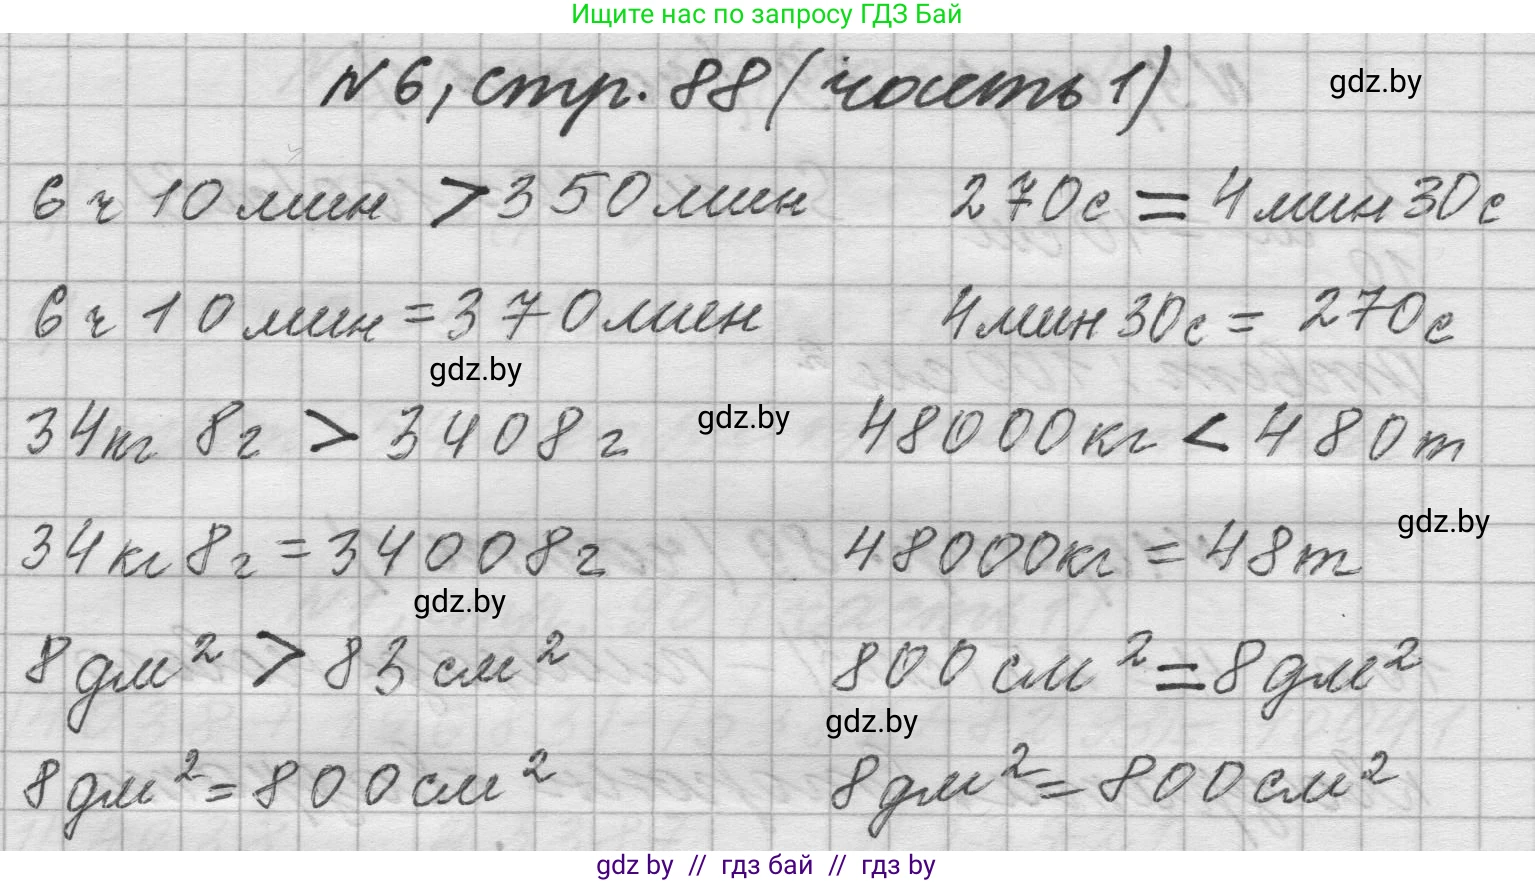 Ищите нас по запросу ГДЗ Бай
№6, стр. 88 (часть 1)
gdz.by
6 ч 10 мин > 350 мин 270 с = 4 мин 30 с
6 ч 10 мин = 370 мин 4 мин 30 с = 270 с
gdz.by
34 кг 8 г > 3408 г gdz.by 48000 кг < 480 т
gdz.by
34 кг 8 г = 34008 г 48000 кг = 48 т
gdz.by
8 дм² > 83 см² 800 см² = 8 дм²
gdz.by
8 дм² = 800 см² 8 дм² = 800 см²
gdz by // гдз бай // гдз by